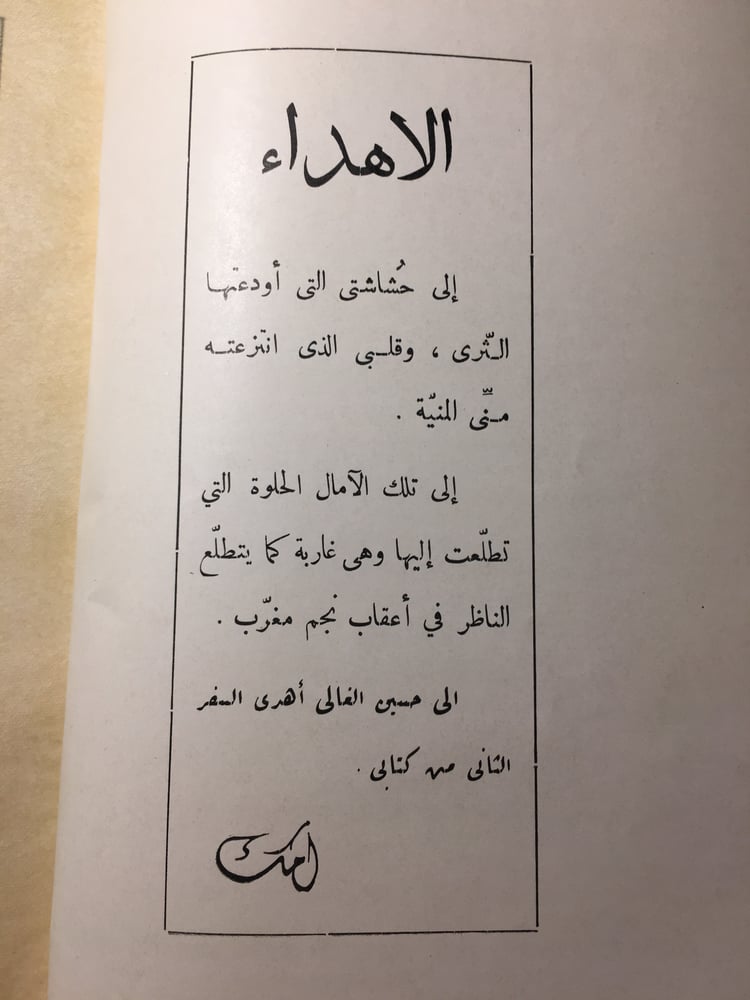 الاهداء
إلى حُشاشتى التى أودعتها
الثّرى ، وقلبى الذى انتزعته
منّى المنيّة .
إلى تلك الآمال الحلوة التي
تطلّعت إليها وهى غاربة كما يتطلّع
الناظر في أعقاب نجم مغرّب .
الى حسين الغالى أهدى السفر
الثانى من كتابى .
امك